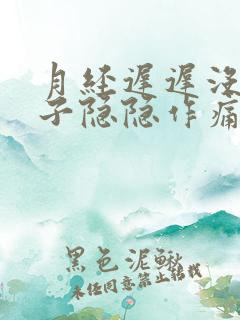 月经迟迟没
子隐隐作痛
黑色泥鳅
未经同意禁止转载